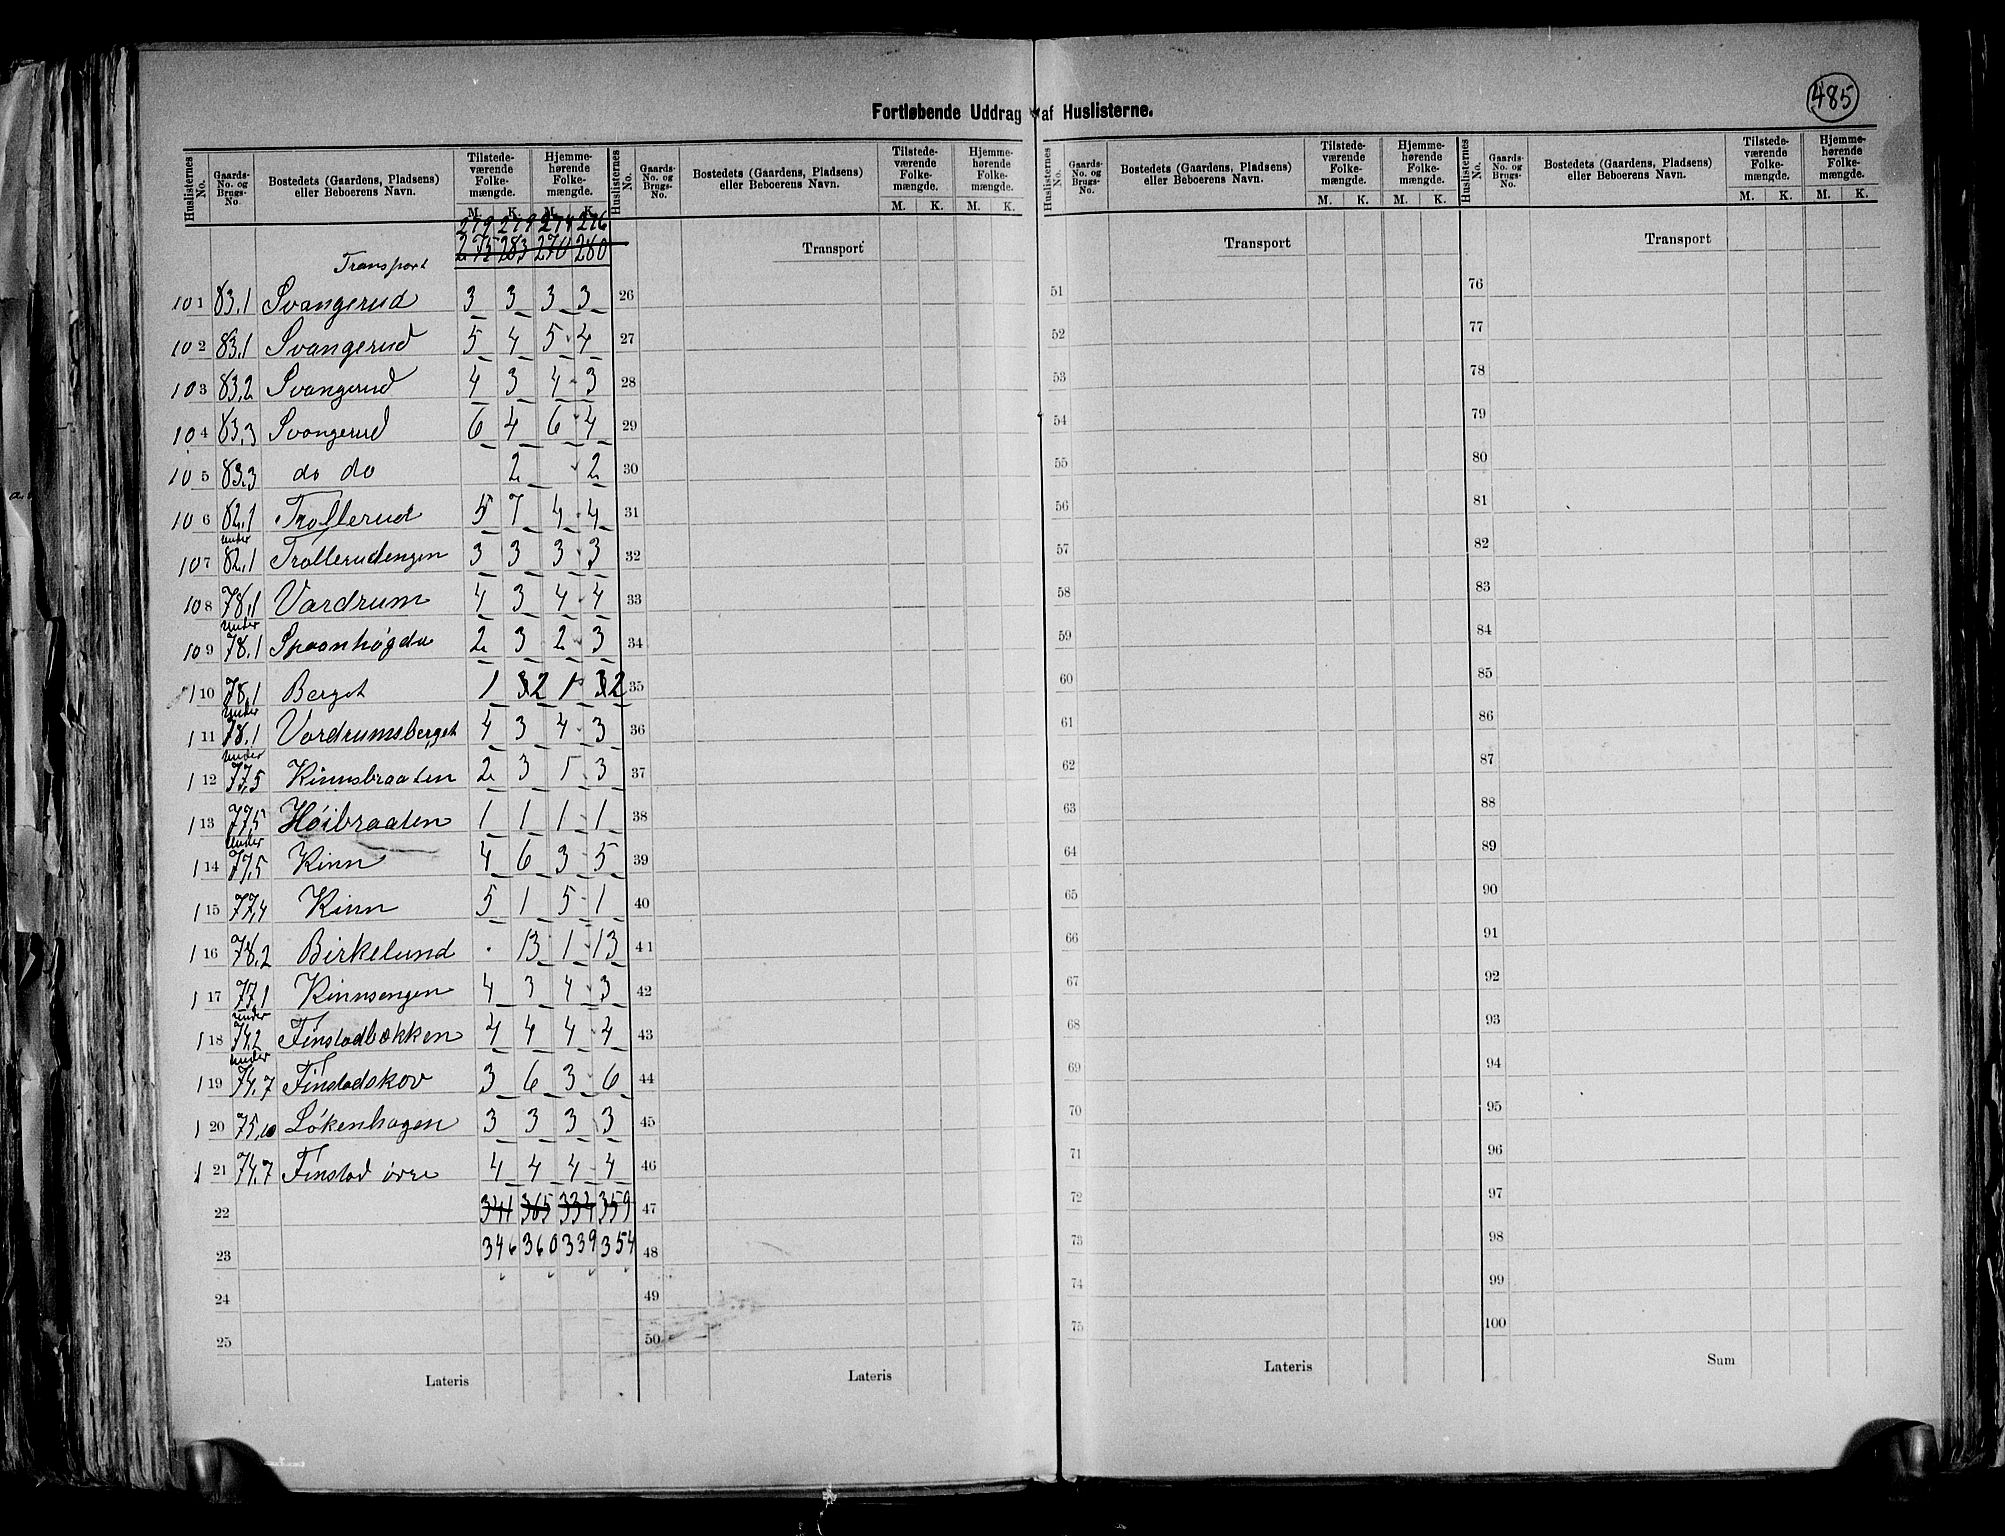 485
Fortløbende Uddrag af Huslisterne.
Huslisternes No. | Gaards-No. og Brugs-No. | Bostedets (Gaardens, Pladsens) eller Beboerens Navn. | Tilstedeværende Folkemængde. M. K. | Hjemmehørende Folkemængde. M. K.
Huslisternes No. | Gaards-No. og Brugs-No. | Bostedets (Gaardens, Pladsens) eller Beboerens Navn. | Tilstedeværende Folkemængde. M. K. | Hjemmehørende Folkemængde. M. K.
Huslisternes No. | Gaards-No. og Brugs-No. | Bostedets (Gaardens, Pladsens) eller Beboerens Navn. | Tilstedeværende Folkemængde. M. K. | Hjemmehørende Folkemængde. M. K.
Huslisternes No. | Gaards-No. og Brugs-No. | Bostedets (Gaardens, Pladsens) eller Beboerens Navn. | Tilstedeværende Folkemængde. M. K. | Hjemmehørende Folkemængde. M. K.
279 279 274 276
Transport 275 283 270 280
101 83,1 Svangerud 3 3 3 3
102 83,1 Svangerud 5 4 5 4
103 83,2 Svangerud 4 3 4 3
104 83,3 Svangerud 6 4 6 4
105 83,3 do do 2 2
106 82,1 Trollerud 5 7 4 4
107 under 82,1 Trollerudengen 3 3 3 3
108 78,1 Vardrum 4 3 4 4
109 under 78,1 Spaanhøgda 2 3 2 3
110 78,1 Berget 1 2 1 2
111 under 78,1 Vardrumsberget 4 3 4 3
112 under 77,5 Kinnsbraaten 2 3 1 3
113 77,5 Høibraaten 1 1 1 1
114 under 77,5 Kinn 4 6 3 5
115 77,4 Kinn 5 1 5 1
116 78,2 Birkelund . 13 1 13
117 77,1 Kinnsengen 4 3 4 3
118 under 74,2 Finstadbækken 4 4 4 4
119 under 74,7 Finstadskov 3 6 3 6
120 75,10 Løkenhagen 3 3 3 3
121 74,7 Finstad øvre 4 4 4 4
22 341 365 334 359
23 346 360 339 354
24
25
Lateris
Transport
26
27
28
29
30
31
32
33
34
35
36
37
38
39
40
41
42
43
44
45
46
47
48
49
50
Lateris
Transport
51
52
53
54
55
56
57
58
59
60
61
62
63
64
65
66
67
68
69
70
71
72
73
74
75
Lateris
Transport
76
77
78
79
80
81
82
83
84
85
86
87
88
89
90
91
92
93
94
95
96
97
98
99
100
Sum